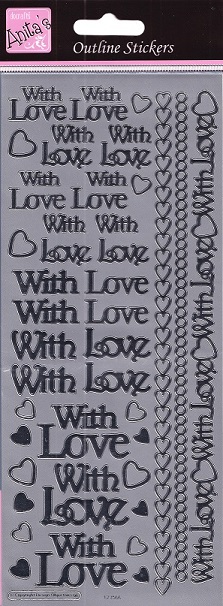 docrafts
Anita's
Outline Stickers
With With
Love Love
With With
Love Love
With With
Love Love
With With
Love Love
With Love
With Love
With Love
With Love
With
Love
With
Love
With
Love
With Love
With Love
With Love
With Love
With Love